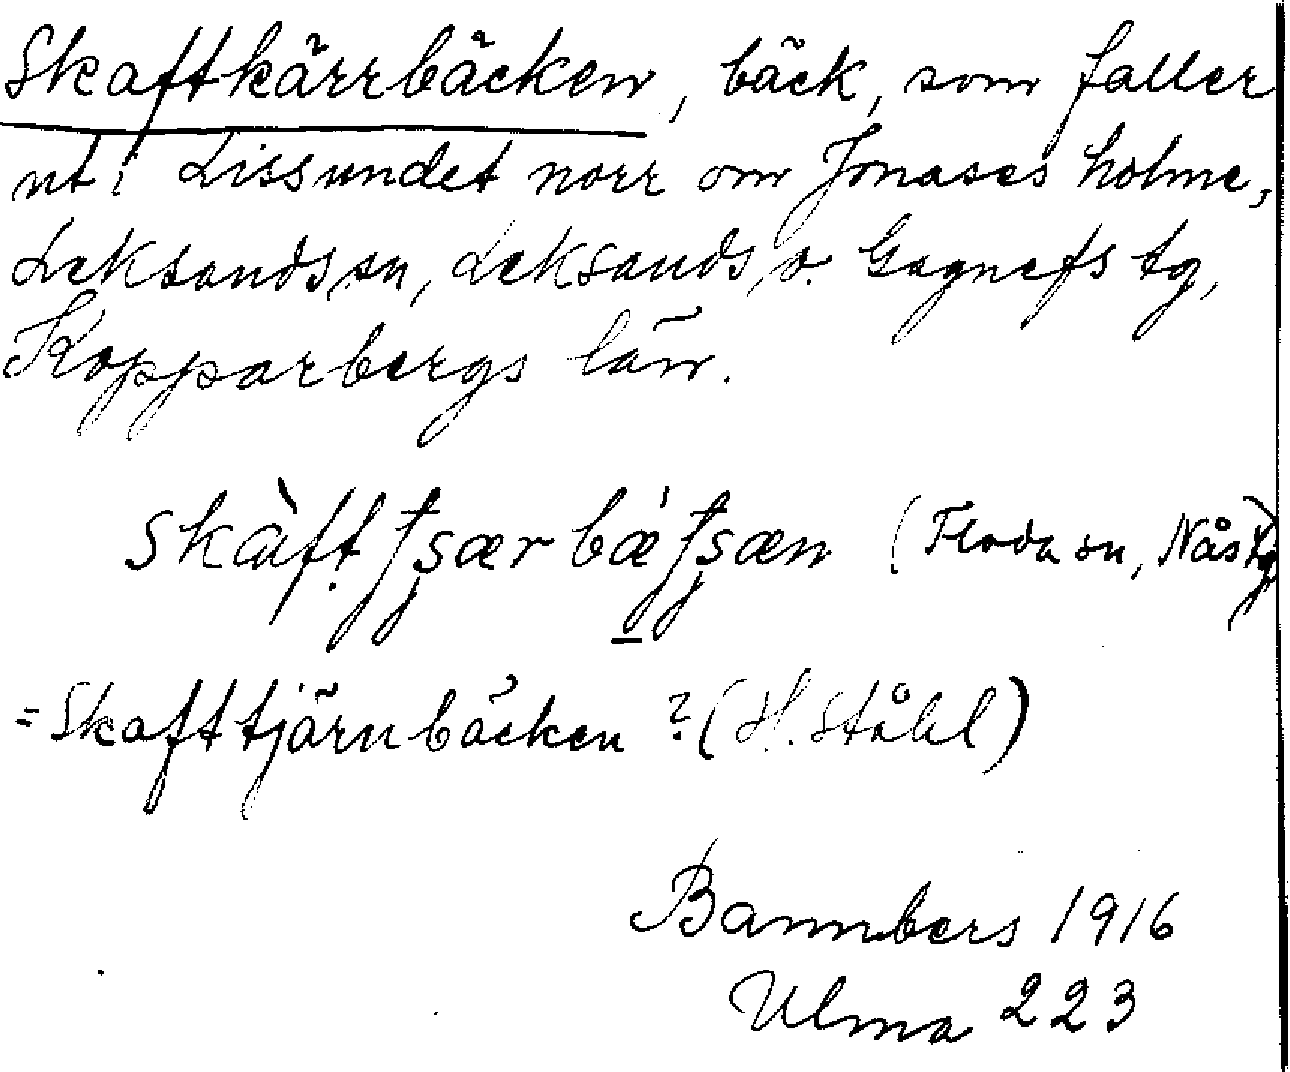 Skaftkärrbäcken, bäck, som faller
ut i Lissundet norr om Jonases holme,
Leksands sn, Leksands o. Gagnefs tg,
Kopparbergs län.
(Floda sn, Nås tg)
= Skafttjärnbäcken ? (H. Ståhl)
Bannbers 1916
Ulma 223